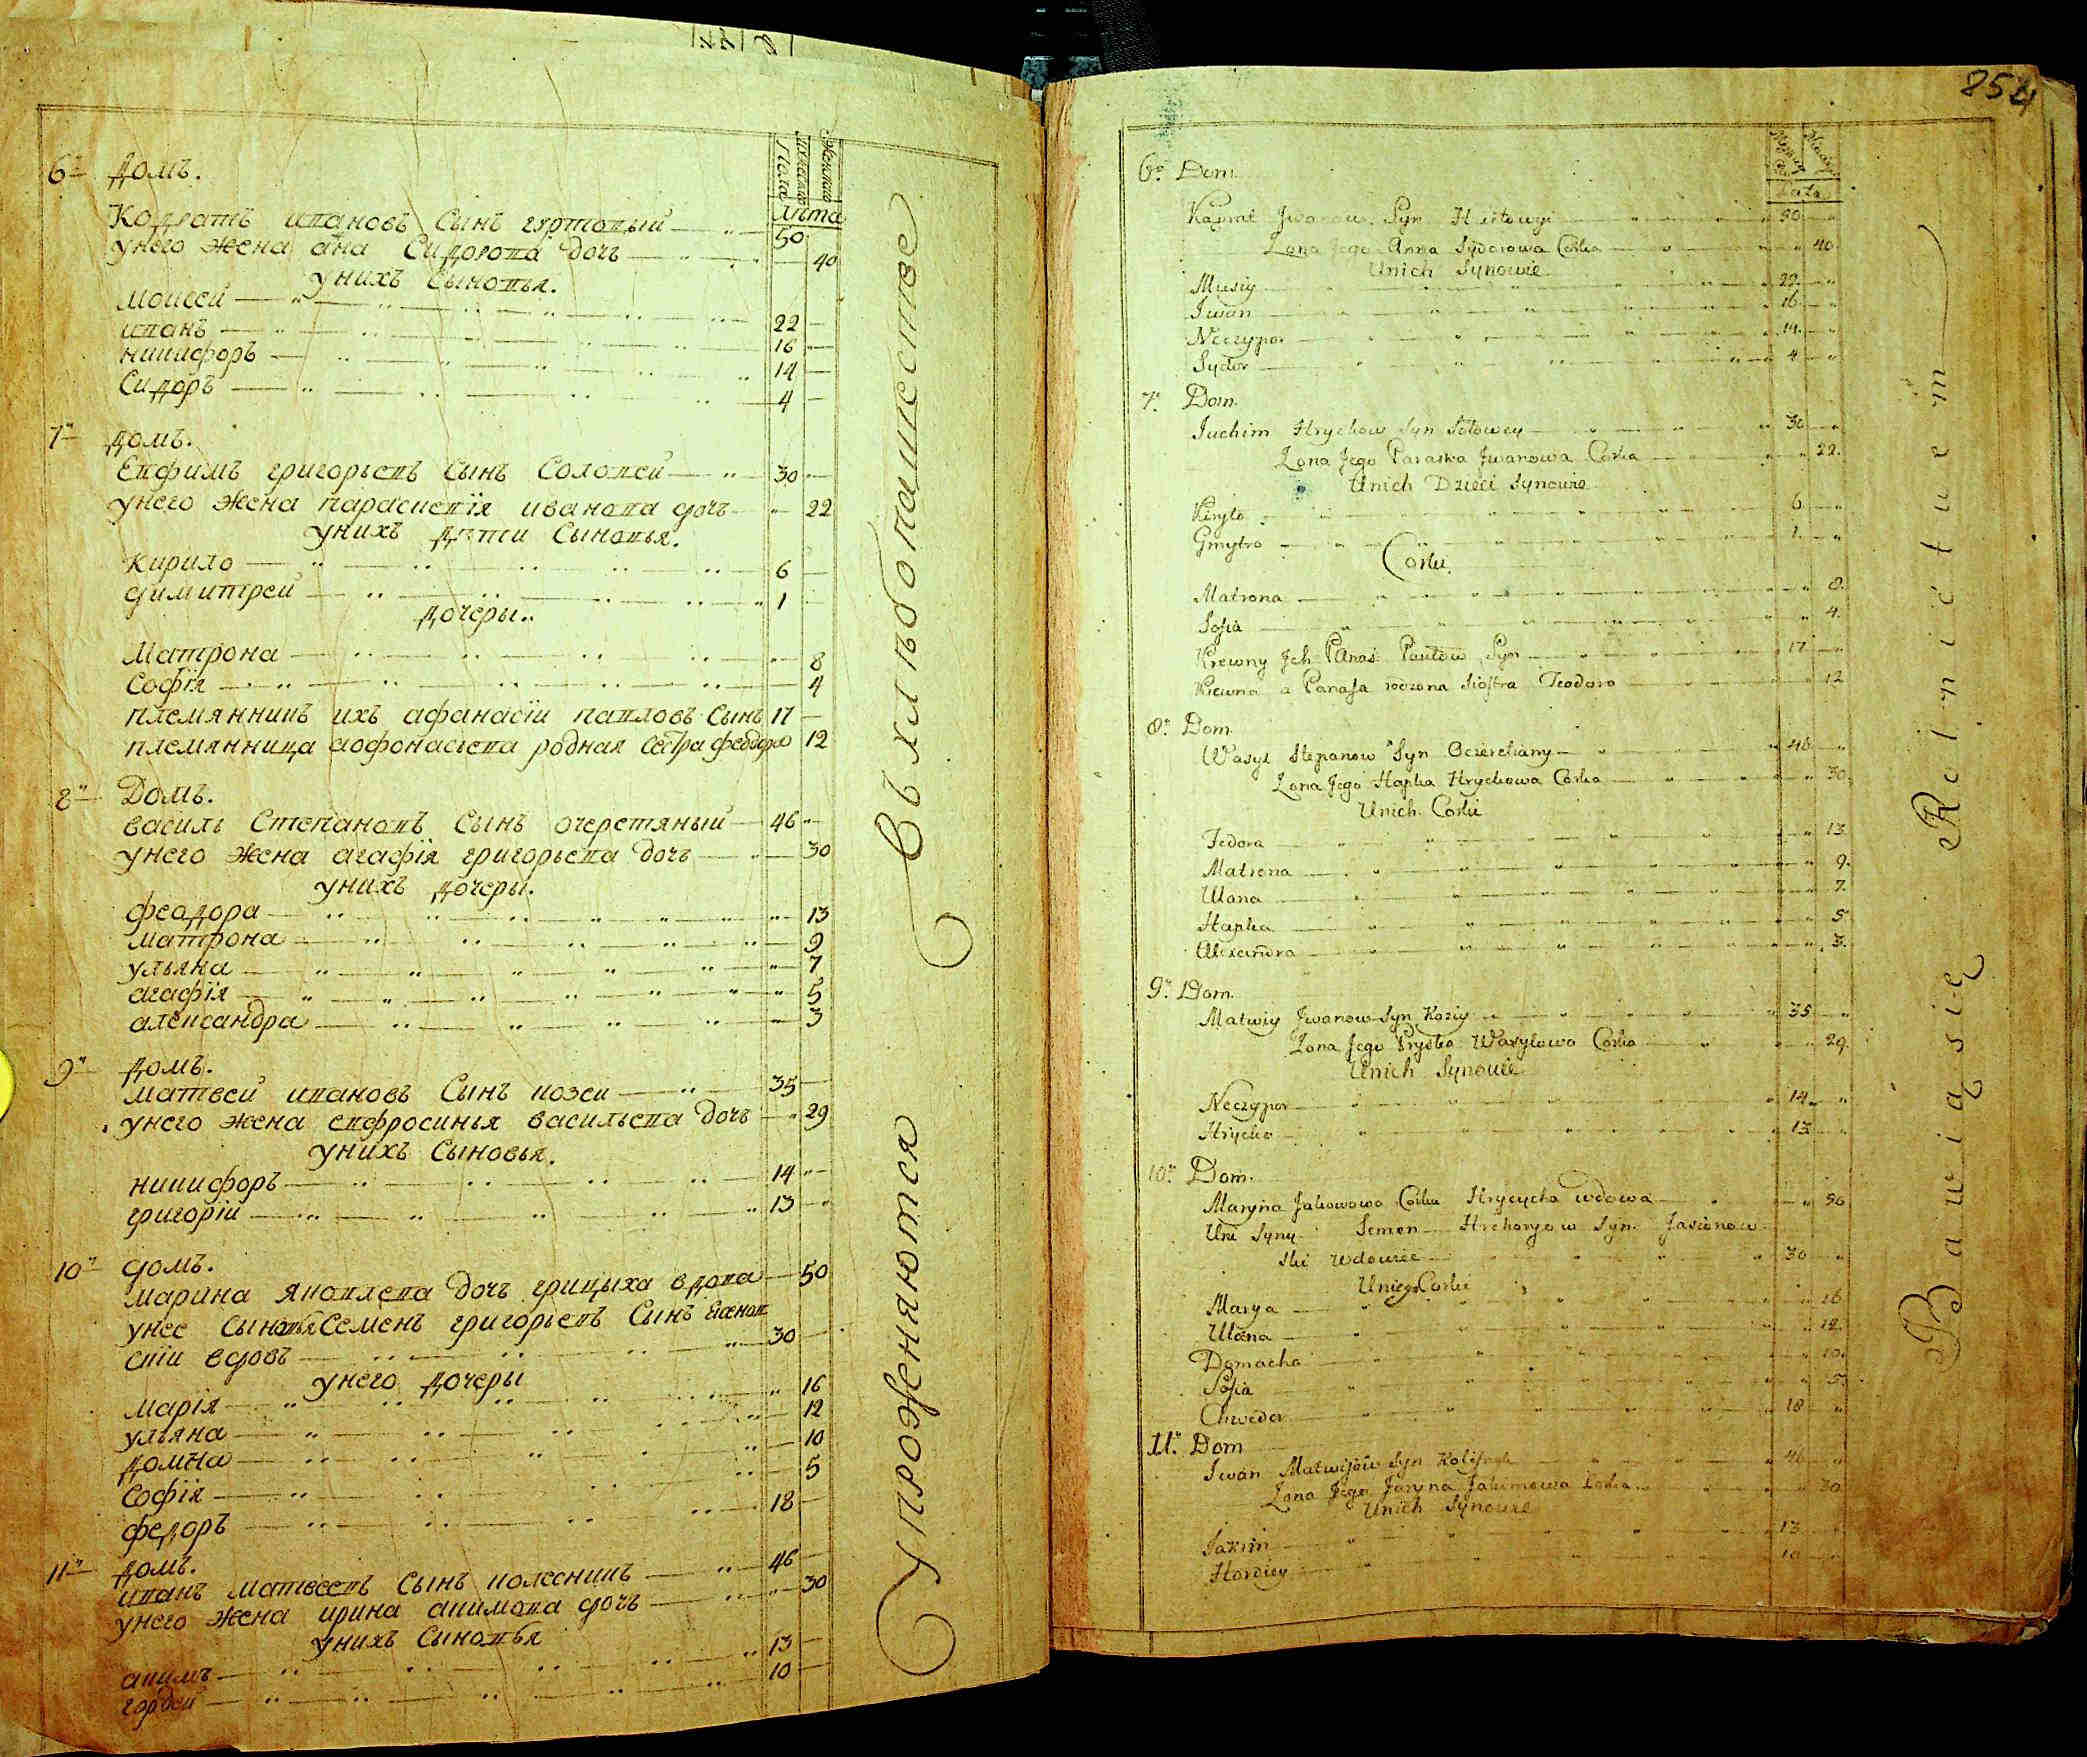 6й домъ.
женска
мужеска
Пола
Лѣта
Кодратъ ивановъ Сынъ гуртовый 50
унего жена ана Сидорова дочь 40
унихъ Сыновья.
моисей 22
иванъ 16
никифоръ 14
Сидоръ 4
7й домъ.
Евфимъ григорьевъ Сынъ Соловей 30
унего жена параскевїя иванова дочь 22
унихъ дѣти Сыновья.
Кирило 6
димитрей 1
дочеры.
Матрона 8
Софїя 4
племянникъ ихъ афанасїи павловъ Сынъ 17
племянница аофонасьева родная Сестра феодора 12
8й Домъ.
василь Степановъ Сынъ очеретяный 46
унего жена агафїя григорьева дочь 30
унихъ дочеры.
феодора 13
матрона 9
ульяна 7
агафїя 5
александра 3
9й домъ.
матвей ивановъ Сынъ козеи 35
унего жена евфросинья васильева дочь 29
унихъ Сыновья.
никифоръ 14
григорїи 13
10й домъ.
марина яковлева дочь грицыха вдова 50
унее Сыновья Семенъ григорьевъ Сынъ Ясенов
скїи вдовъ 30
унего дочеры
марїя 16
ульяна 12
домна 10
Софїя 5
федоръ 18
11й домъ.
иванъ матвеевъ Сынъ колесникъ 46
унего жена ирина акимова дочь 30
унихъ Сыновья
акимъ 13
гордей 10
Упроженяются Въхлѣбопашестве
854
6º Dom
Lata
Kągrat Jwanow Syn Hurtowyi 50
Zona Jego Anna Sydorowa Corka 40
Unich Synowie
Musiy 22
Jwan 16
Neczypor 14
Sydor 4
7º Dom
Juchim Hryckow Syn Sołowey 30
Zona Jego Paraska Jwanowa Corka 22.
Unich Dzieci Synowie
Kiryło 6
Gmytro 1.
Corki.
Matrona 8.
Sofia 4.
Krewny Jch Panas Pawłow Syn 17
Krewna a Panasa rodzona Siostra Teodora 12
8º Dom
Wasyl Stepanow Syn Oczeretiany 46
Zona Jego Hapka Hryckowa Corka 30.
Unich Corki
Fedora 13
Matrona 9.
Ulana 7.
Hapka 5
Alexandra 3.
9º Dom
Matwiy Jwanow Syn Koziy 35
Zona Jego Pryśka Wasylowa Corka 29
Unich Synowie
Neczypor 14
Hrycko 13
10º Dom.
Maryna Jakowowa Corka Hrycycha wdowa 50
Uni Syny Semen Hrehoryow Syn Jasienow
ski wdowiec 30
Uniego Corki
Marya 16
Ulana 12.
Domacha 10.
Sofia 5.
Chwedor 18
11º Dom
Jwan Matwijow Syn Kolisnyk 46
Zona Jego Jaryna Jakimowa Corka 30
Unich Synowie
Jakim 13
Hordiey 10
Bawią się Rolnictwem